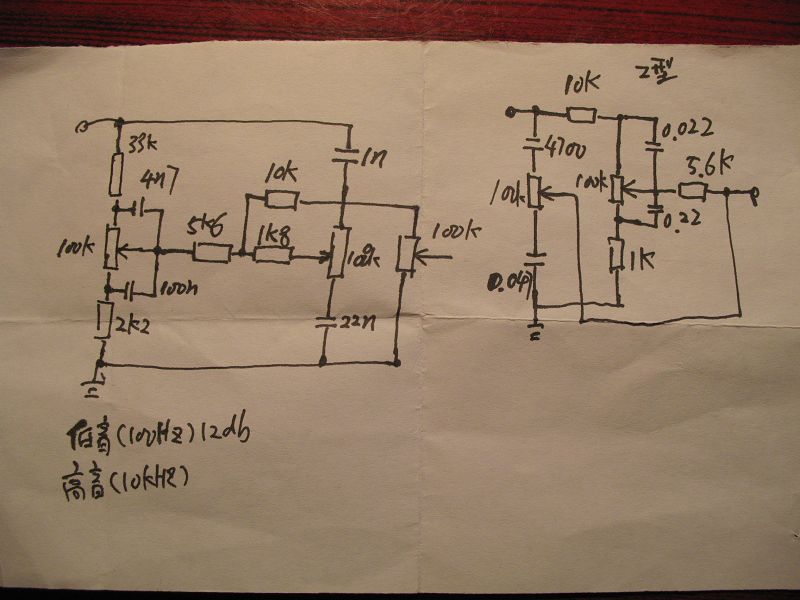 33k
4n7
100k
100n
2k2
5k6
10k
1k8
1n
100k
22n
低音(100HZ)12db
高音(10kHZ)
10K
4700
100k
100k
0.022
5.6K
0.22
1K
0.047